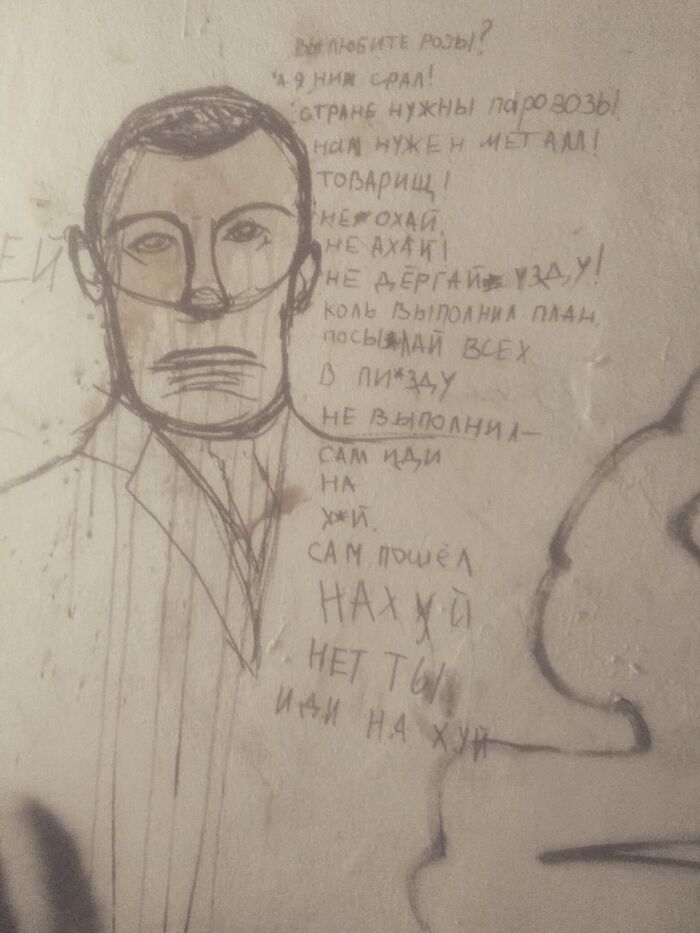 ВЫ ЛЮБИТЕ РОЗЫ?
А Я НИХ СРАЛ!
СТРАНЕ НУЖНЫ ПАРОВОЗЫ!
НАМ НУЖЕН МЕТАЛЛ!
ТОВАРИЩ!
НЕ ОХАЙ,
НЕ АХАЙ!
НЕ ДЁРГАЙ УЗДУ!
КОЛЬ ВЫПОЛНИЛ ПЛАН,
ПОСЫЛАЙ ВСЕХ
В ПИ*ЗДУ
НЕ ВЫПОЛНИЛ—
САМ ИДИ
НА
Х*Й.
САМ ПОШЁЛ
НАХУЙ
НЕТ ТЫ
ИДИ НА ХУЙ
ЕЙ